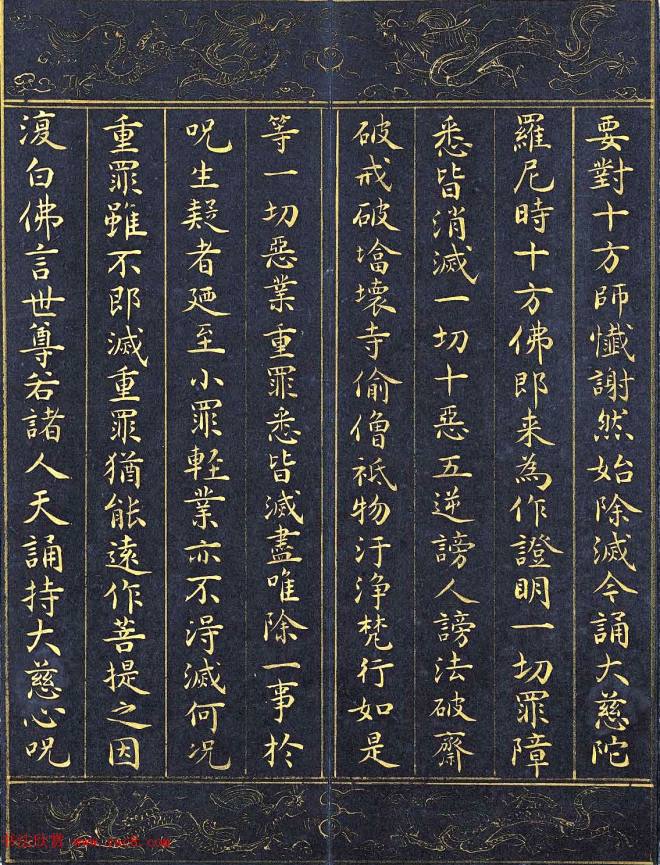 要對十方師懺謝然始除滅今誦大慈陀
羅尼時十方佛即来為作證明一切罪障
悉皆消滅一切十惡五逆謗人謗法破齋
破戒破墖壞寺偷僧祇物汙浄梵行如是
等一切惡業重罪悉皆滅盡唯除一事於
呪生疑者廼至小罪軽業亦不淂滅何况
重罪雖不即滅重罪猶能遠作菩提之因
復白佛言世尊若諸人天誦持大慈心呪
书法欣赏